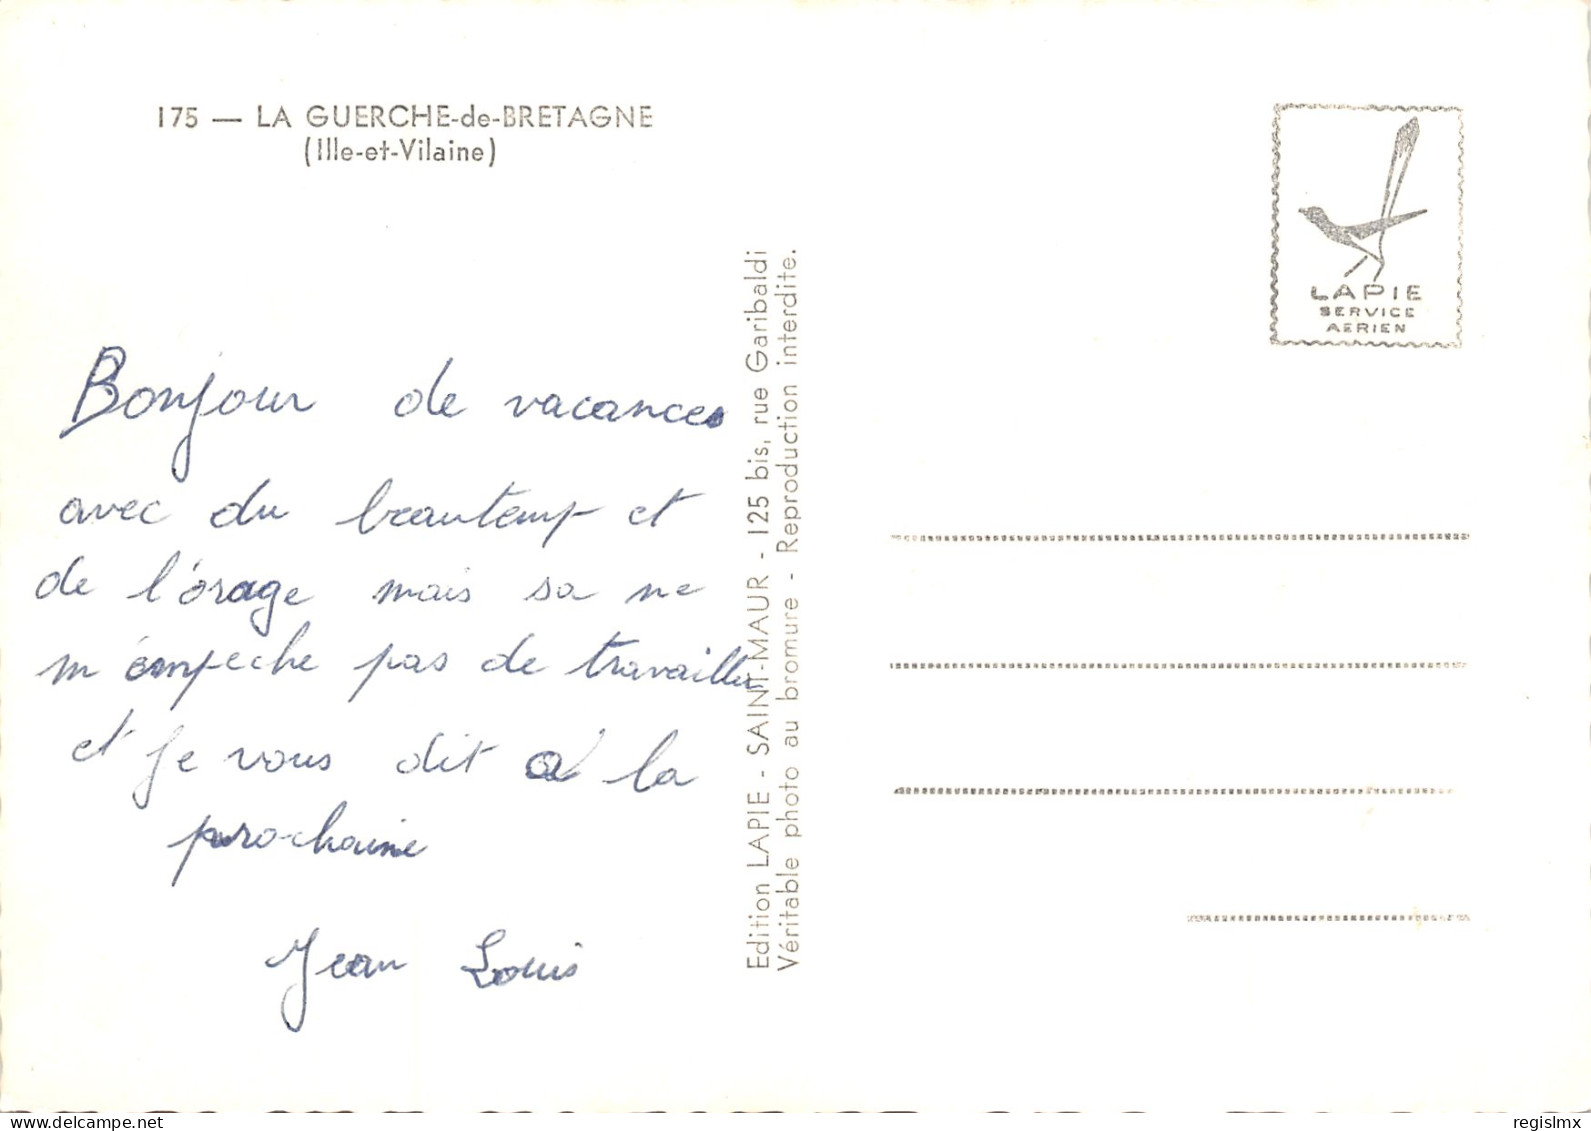 175 — LA GUERCHE-de-BRETAGNE
(Ille-et-Vilaine)
LAPIE
SERVICE
AERIEN
Bonjour de vacances
avec du beautemp et
de l'orage mais sa ne
m'empeche pas de travailler
et je vous dit à la
prochaine
Jean Louis
Edition LAPIE - SAINT-MAUR - 125 bis, rue Garibaldi
Véritable photo au bromure - Reproduction interdite.
delcampe.net
regislmx